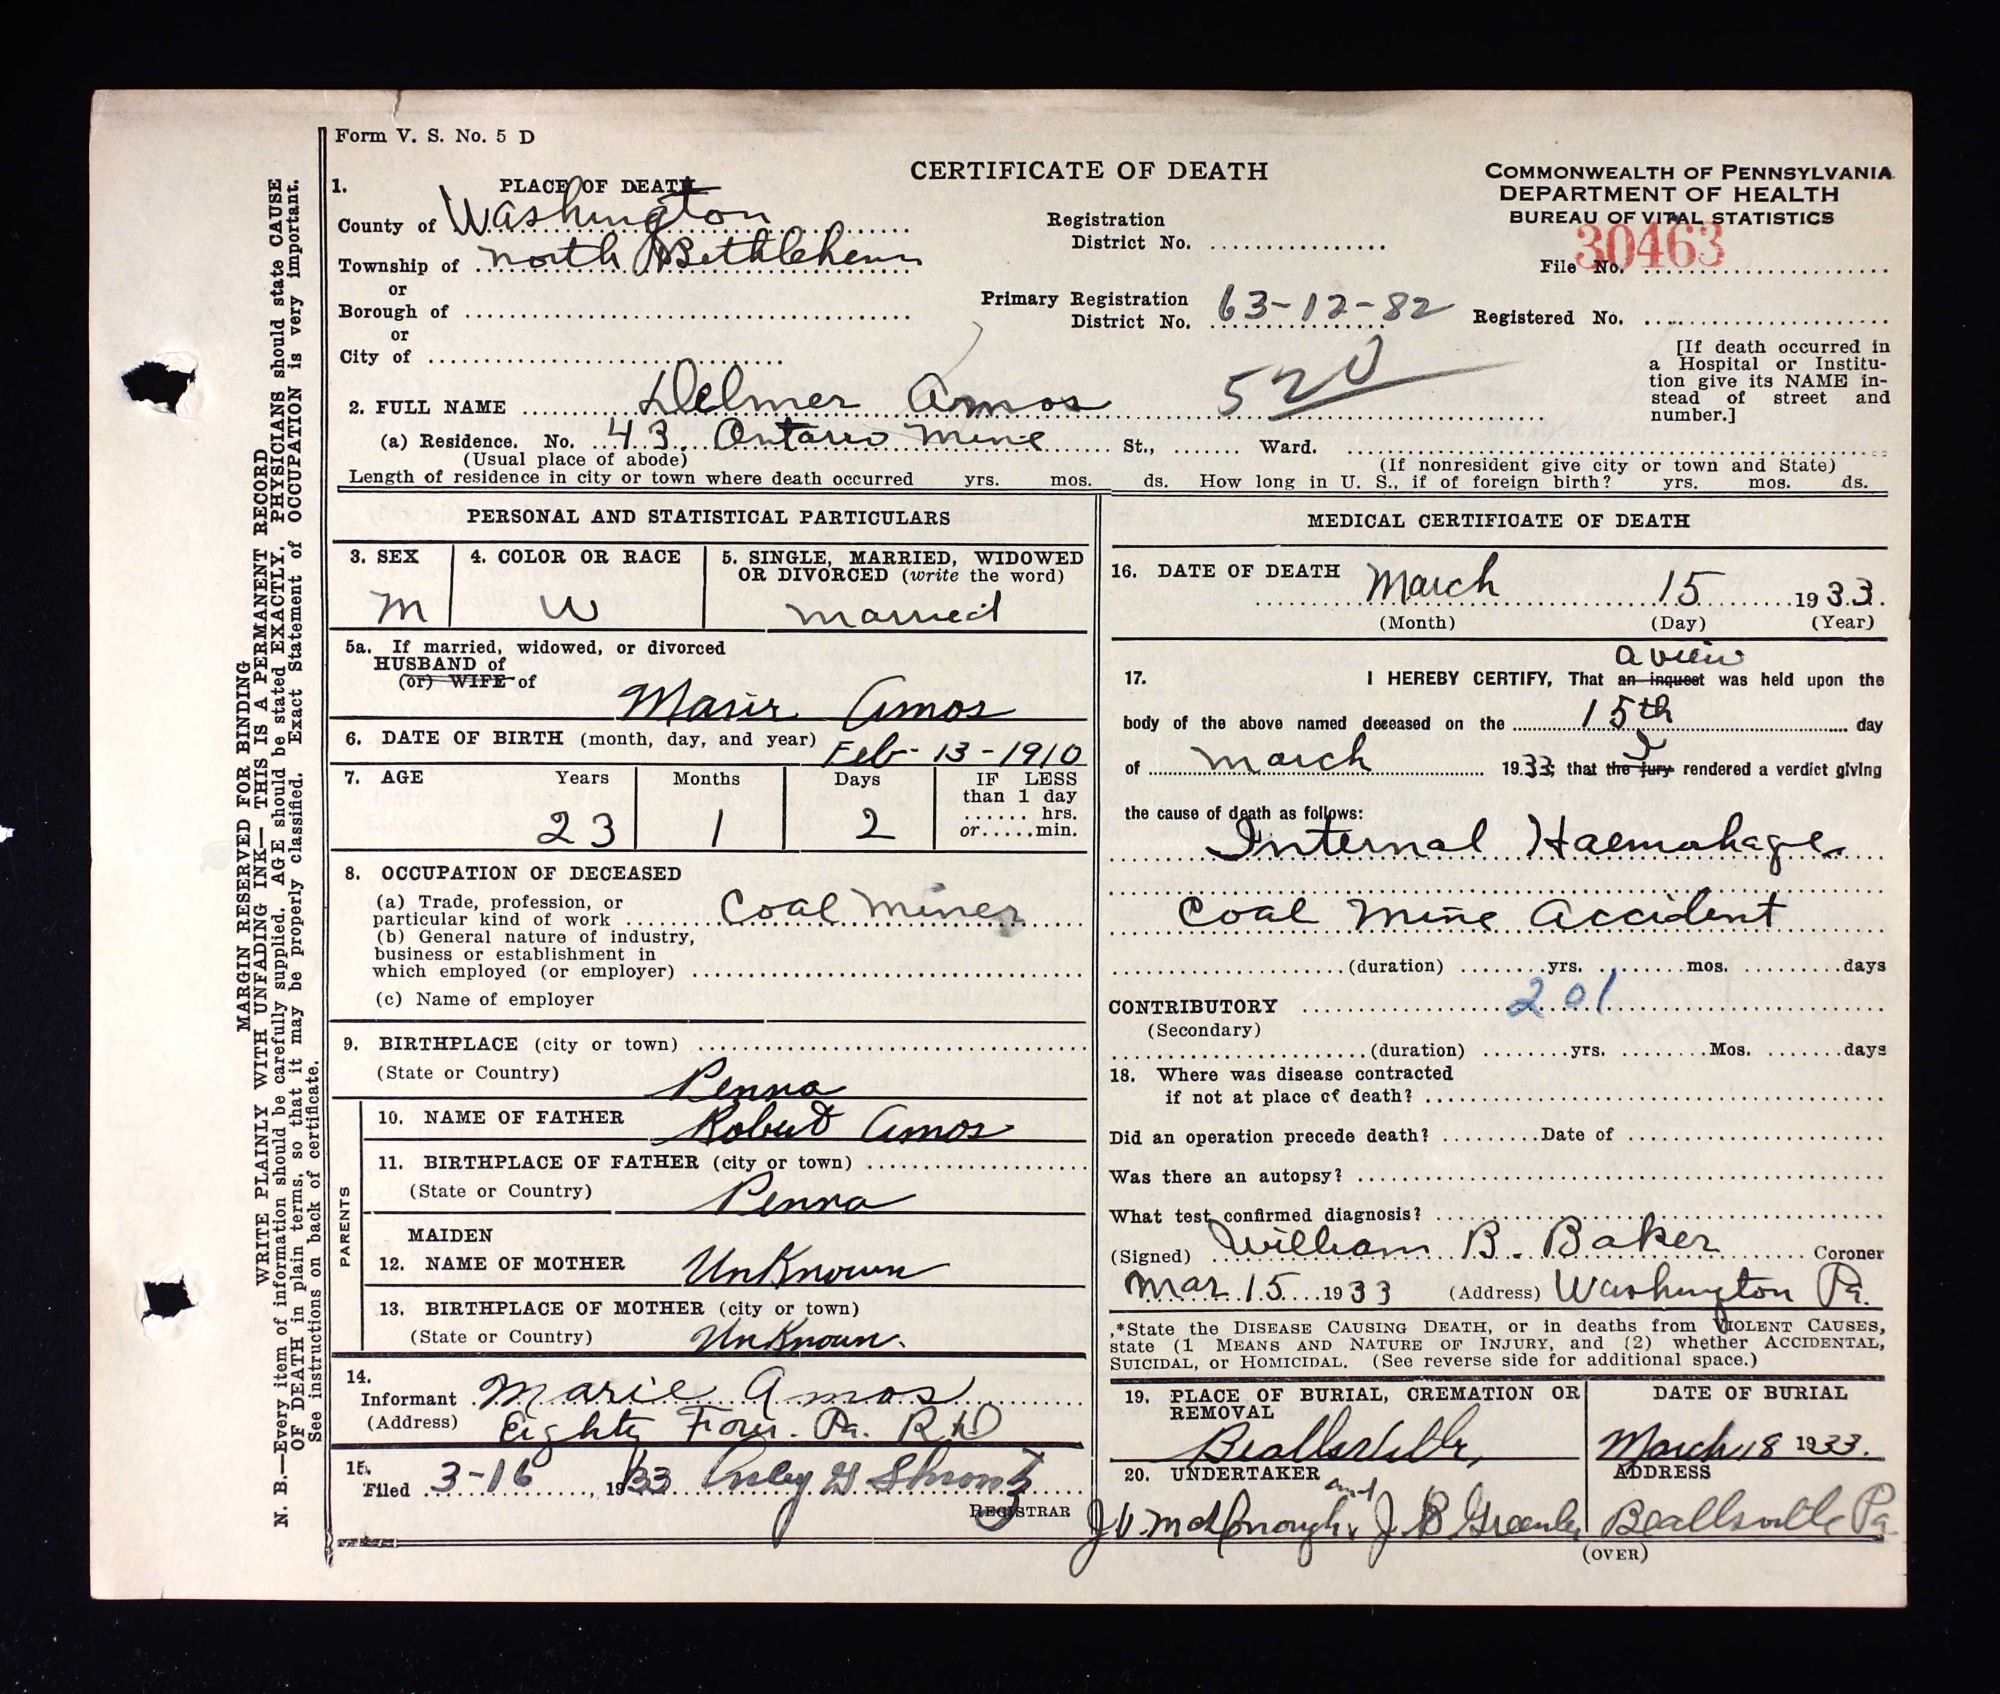 Form V. S. No. 5 D
CERTIFICATE OF DEATH
COMMONWEALTH OF PENNSYLVANIA
DEPARTMENT OF HEALTH
BUREAU OF VITAL STATISTICS
30463
File No.
1. PLACE OF DEATH
County of Washington
Township of North Bethlehem
or
Borough of
or
City of
Registration
District No.
Primary Registration
District No. 63-12-82
Registered No.
520
[If death occurred in
a Hospital or Institu-
tion give its NAME in-
stead of street and
number.]
2. FULL NAME Delmer Amos
(a) Residence. No. 43 Ontario Mine St., Ward.
(Usual place of abode)
(If nonresident give city or town and State)
Length of residence in city or town where death occurred yrs. mos. ds. How long in U. S., if of foreign birth? yrs. mos. ds.
PERSONAL AND STATISTICAL PARTICULARS
3. SEX
M
4. COLOR OR RACE
W
5. SINGLE, MARRIED, WIDOWED
OR DIVORCED (write the word)
Married
5a. If married, widowed, or divorced
HUSBAND of
(or) WIFE of
Marie Amos
6. DATE OF BIRTH (month, day, and year) Feb-13-1910
7. AGE Years Months Days IF LESS
than 1 day
hrs.
or min.
23 1 2
8. OCCUPATION OF DECEASED
(a) Trade, profession, or
particular kind of work Coal Miner
(b) General nature of industry,
business or establishment in
which employed (or employer)
(c) Name of employer
9. BIRTHPLACE (city or town)
(State or Country) Penna
PARENTS
10. NAME OF FATHER Robert Amos
11. BIRTHPLACE OF FATHER (city or town)
(State or Country) Penna
MAIDEN
12. NAME OF MOTHER UnKnown
13. BIRTHPLACE OF MOTHER (city or town)
(State or Country) UnKnown.
14.
Informant Marie Amos
(Address) Eighty Four. Pa. R D
15.
Filed 3-16, 1933
REGISTRAR
MEDICAL CERTIFICATE OF DEATH
16. DATE OF DEATH March 15 1933.
(Month) (Day) (Year)
a view
17. I HEREBY CERTIFY, That an inquest was held upon the
body of the above named deceased on the 15th day
I
of March 1933; that the jury rendered a verdict giving
the cause of death as follows:
Internal Haemohage
Coal Mine Accident
(duration) yrs. mos. days
CONTRIBUTORY 201
(Secondary)
(duration) yrs. Mos. days
18. Where was disease contracted
if not at place of death?
Did an operation precede death? Date of
Was there an autopsy?
What test confirmed diagnosis?
(Signed) William B. Baker Coroner
Mar 15 1933 (Address) Washington Pa.
*State the DISEASE CAUSING DEATH, or in deaths from VIOLENT CAUSES,
state (1 MEANS AND NATURE OF INJURY, and (2) whether ACCIDENTAL,
SUICIDAL, or HOMICIDAL. (See reverse side for additional space.)
19. PLACE OF BURIAL, CREMATION OR
REMOVAL
Beallsville,
DATE OF BURIAL
March 18 1933.
20. UNDERTAKER
and
J. V. McDonough J. B Greenlee
ADDRESS
Beallsville Pa.
(OVER)
MARGIN RESERVED FOR BINDING
WRITE PLAINLY WITH UNFADING INK— THIS IS A PERMANENT RECORD
N. B.—Every item of information should be carefully supplied. AGE should be stated EXACTLY. PHYSICIANS should state CAUSE
OF DEATH in plain terms, so that it may be properly classified. Exact Statement of OCCUPATION is very important.
See instructions on back of certificate.